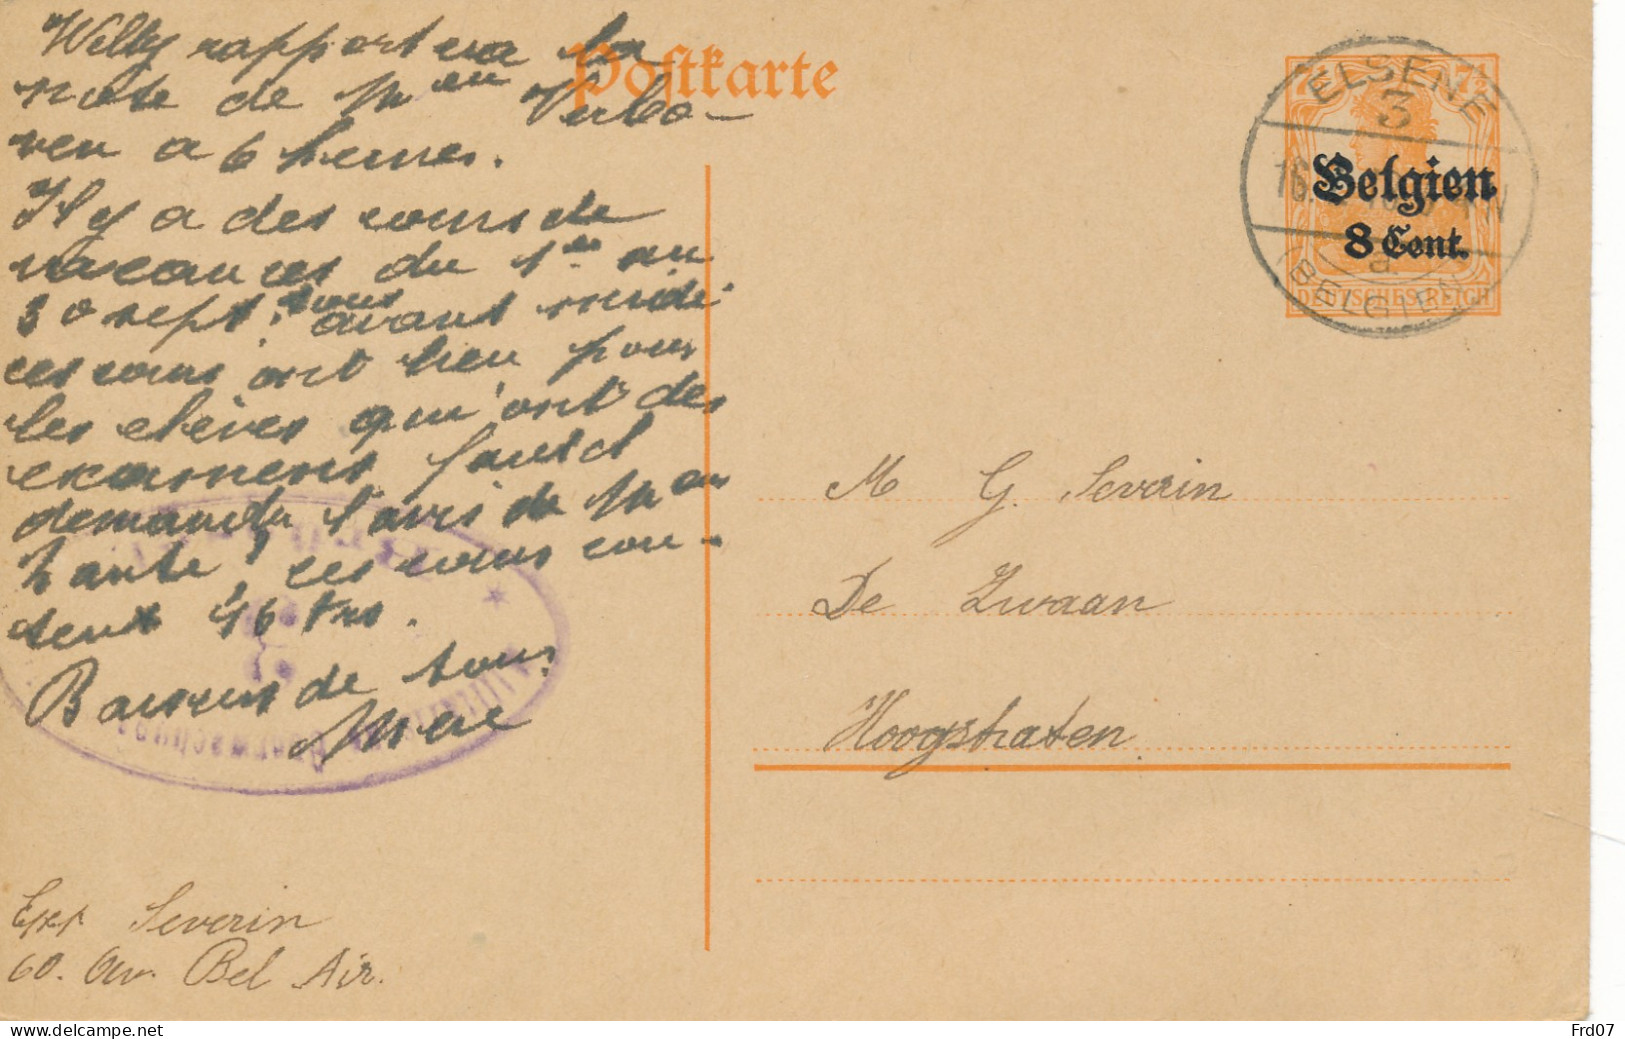 Willy rapportera la
note de Mme Verbo-
ven a 6 heures.
Il y a des cours de
vacances du 1er au
30 sept. tous avant midi
ces cours ont lieu pour
les elèves qui ont des
examens faut il
demander l'avis de M
ces cours cou-
tent 46 frs.
Baisers de tous
Mere
Expt Severin
60. Av. Bel Air.
Postkarte
7½ 7½
ELSENE
3
16.
Belgien
8 Cent.
a
BELGIEN
DEUTSCHES REICH
M G. Severin
De Zwaan
Hoogstraten
www.delcampe.net
Frd07